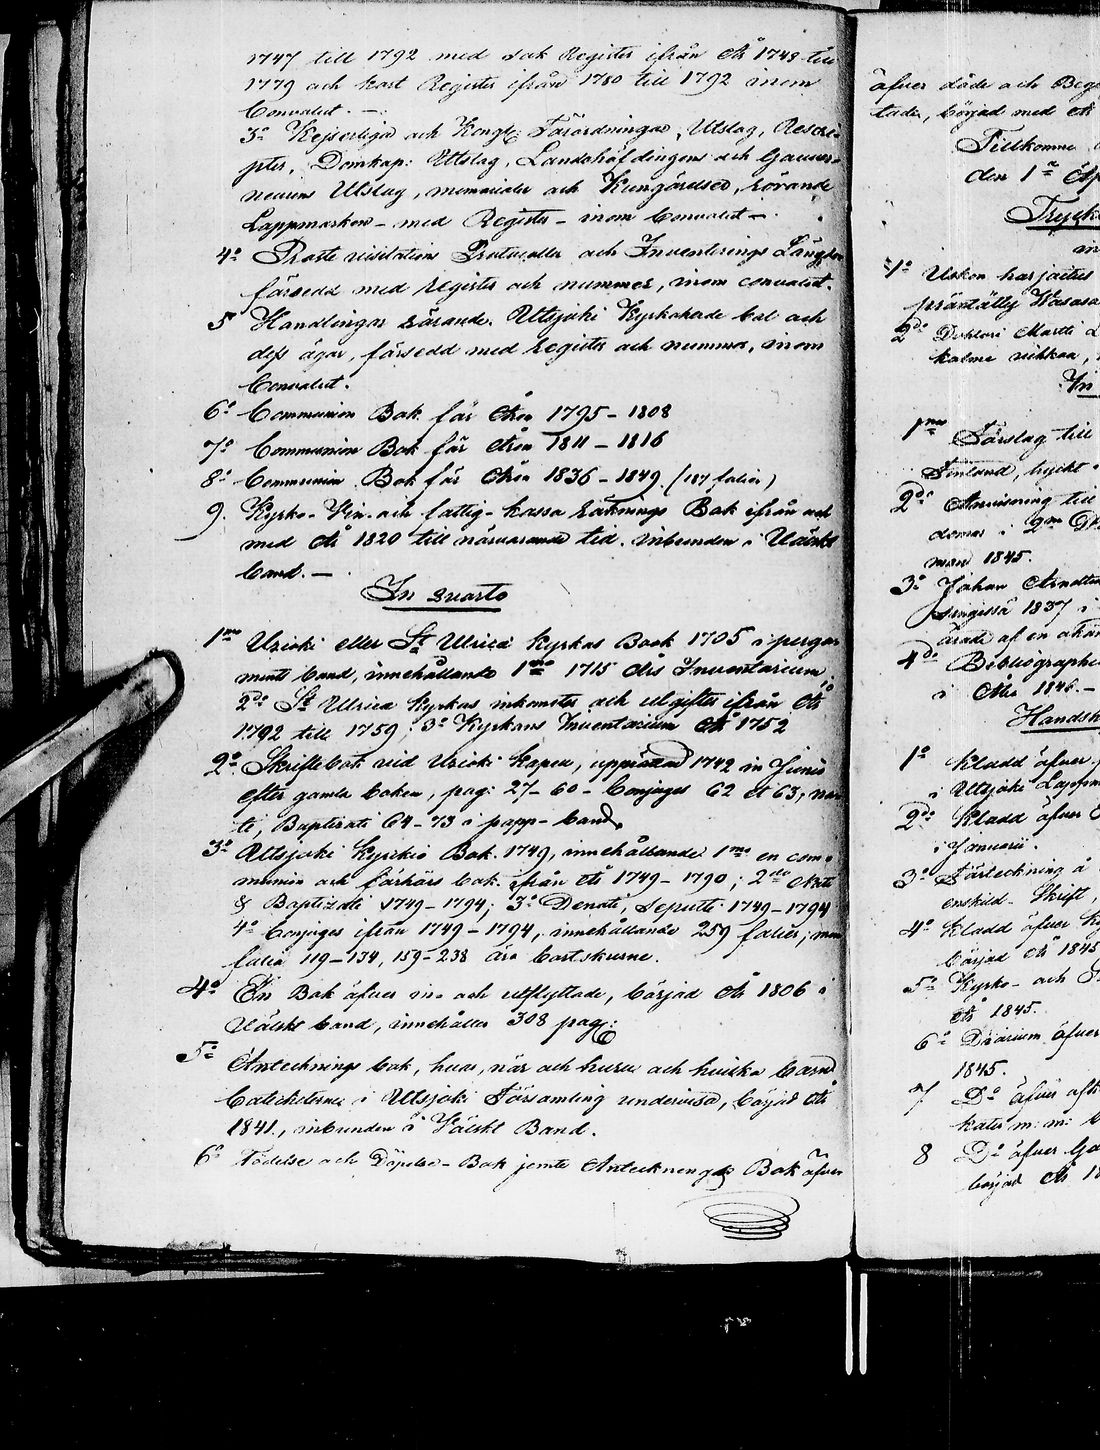 1747 till 1792 med sak Register ifrån År 1749 till
1779 och kort Register ifrån 1780 till 1792 inom
Convolut. —
3:o Kejserliga och Kongl: Förordningar, Utslag, Rescri-
pter, Domkap: Utslag, Landshöfdingens och Gouver-
neurens Utslag, memorialer och Kungörelser, rörande
Lappmarken – med Register – inom Convolut –.
4:o Proste visitations Protocoller och Inventerings Längder
försedd med register och nummer, inom convolut.
5 Handlingar rörande Utsjoki Kyrkoherde bol och
dess ägor, försedd med register och nummer, inom
Convolut.
6:o Communion Bok för Åren 1795 – 1808
7:o Communion Bok för Åren 1811 – 1816
8:o Communion Bok för Åren 1836 – 1849. (187 folier)
9. Kyrko- Vin- och fattig- kassa räknings Bok ifrån och
med År 1820 till närvarande tid. inbunden i Wälskt
band. —
In Quarto
1mo Utsioki eller St Ulricæ Kyrkas Book 1705 i perga-
ments band, innehållande 1mo 1715 års Inventarium
2do St Ulricæ Kyrkas inkomster och utgifter ifrån År
1742 till 1759; 3:o Kyrkans Inventarium År 1752
2:o Skriftebok vid Utsioki Kapell, upprättad 1742 in Junio
efter gamla boken, pag: 27–60 – Conjuges 62 et 63, na-
ti, Baptizati 64–73 i papp-band,
3:o Utsjoki Kyrkio Bok. 1749, innehållande 1mo en com-
munion och förhörs bok. ifrån År 1749–1790; 2do Nati
& Baptizati 1749–1794; 3:o Denati, Sepulti 1749–1794
4:o Conjuges ifrån 1749–1794, innehållande 259 folier; men
folia 119–134, 159–238 äro bortskurne.
4:o En Bok öfver in- och utflyttade, börjad År 1806 i
Wälskt band, innehåller 308 pag:
5:o Antecknings bok, huru, när och huru och hvilka barn
Catecheterne i Utsjoki Församling undervisa, börjad År
1841, inbunden i Wälskt Band.
6:o Födelse och Döpelse-Bok jemte Antecknings Bok öfver
öfver döde och Beg
tade, börjad med År
Tillkomne
den 1:a Ap
Tryck
1:o Uskon harjoitus
präntätty Wasasa
2do Doktori Martti L
kolme
In
1mo Förslag till
Finland, tryckt
2do Anvisning till
domar i 2ne D
man 1845.
3:o Johan Arndtin
1837 i
4do Bibliographi
i Åbo 1846. –
Handsk
1:o Kladd öfver
i Utsjoki Lappm
2do Kladd öfver
i Januarii.
3:o Förteckning å
enskild- Skrift,
4:o Kladd öfver Ky
börjad År 1845
5:o Kyrko- och
År 1845.
6:o Diarium öfver
1845.
7 D:o öfver
kater m: m:
8 D:o öfver
börjad År 18